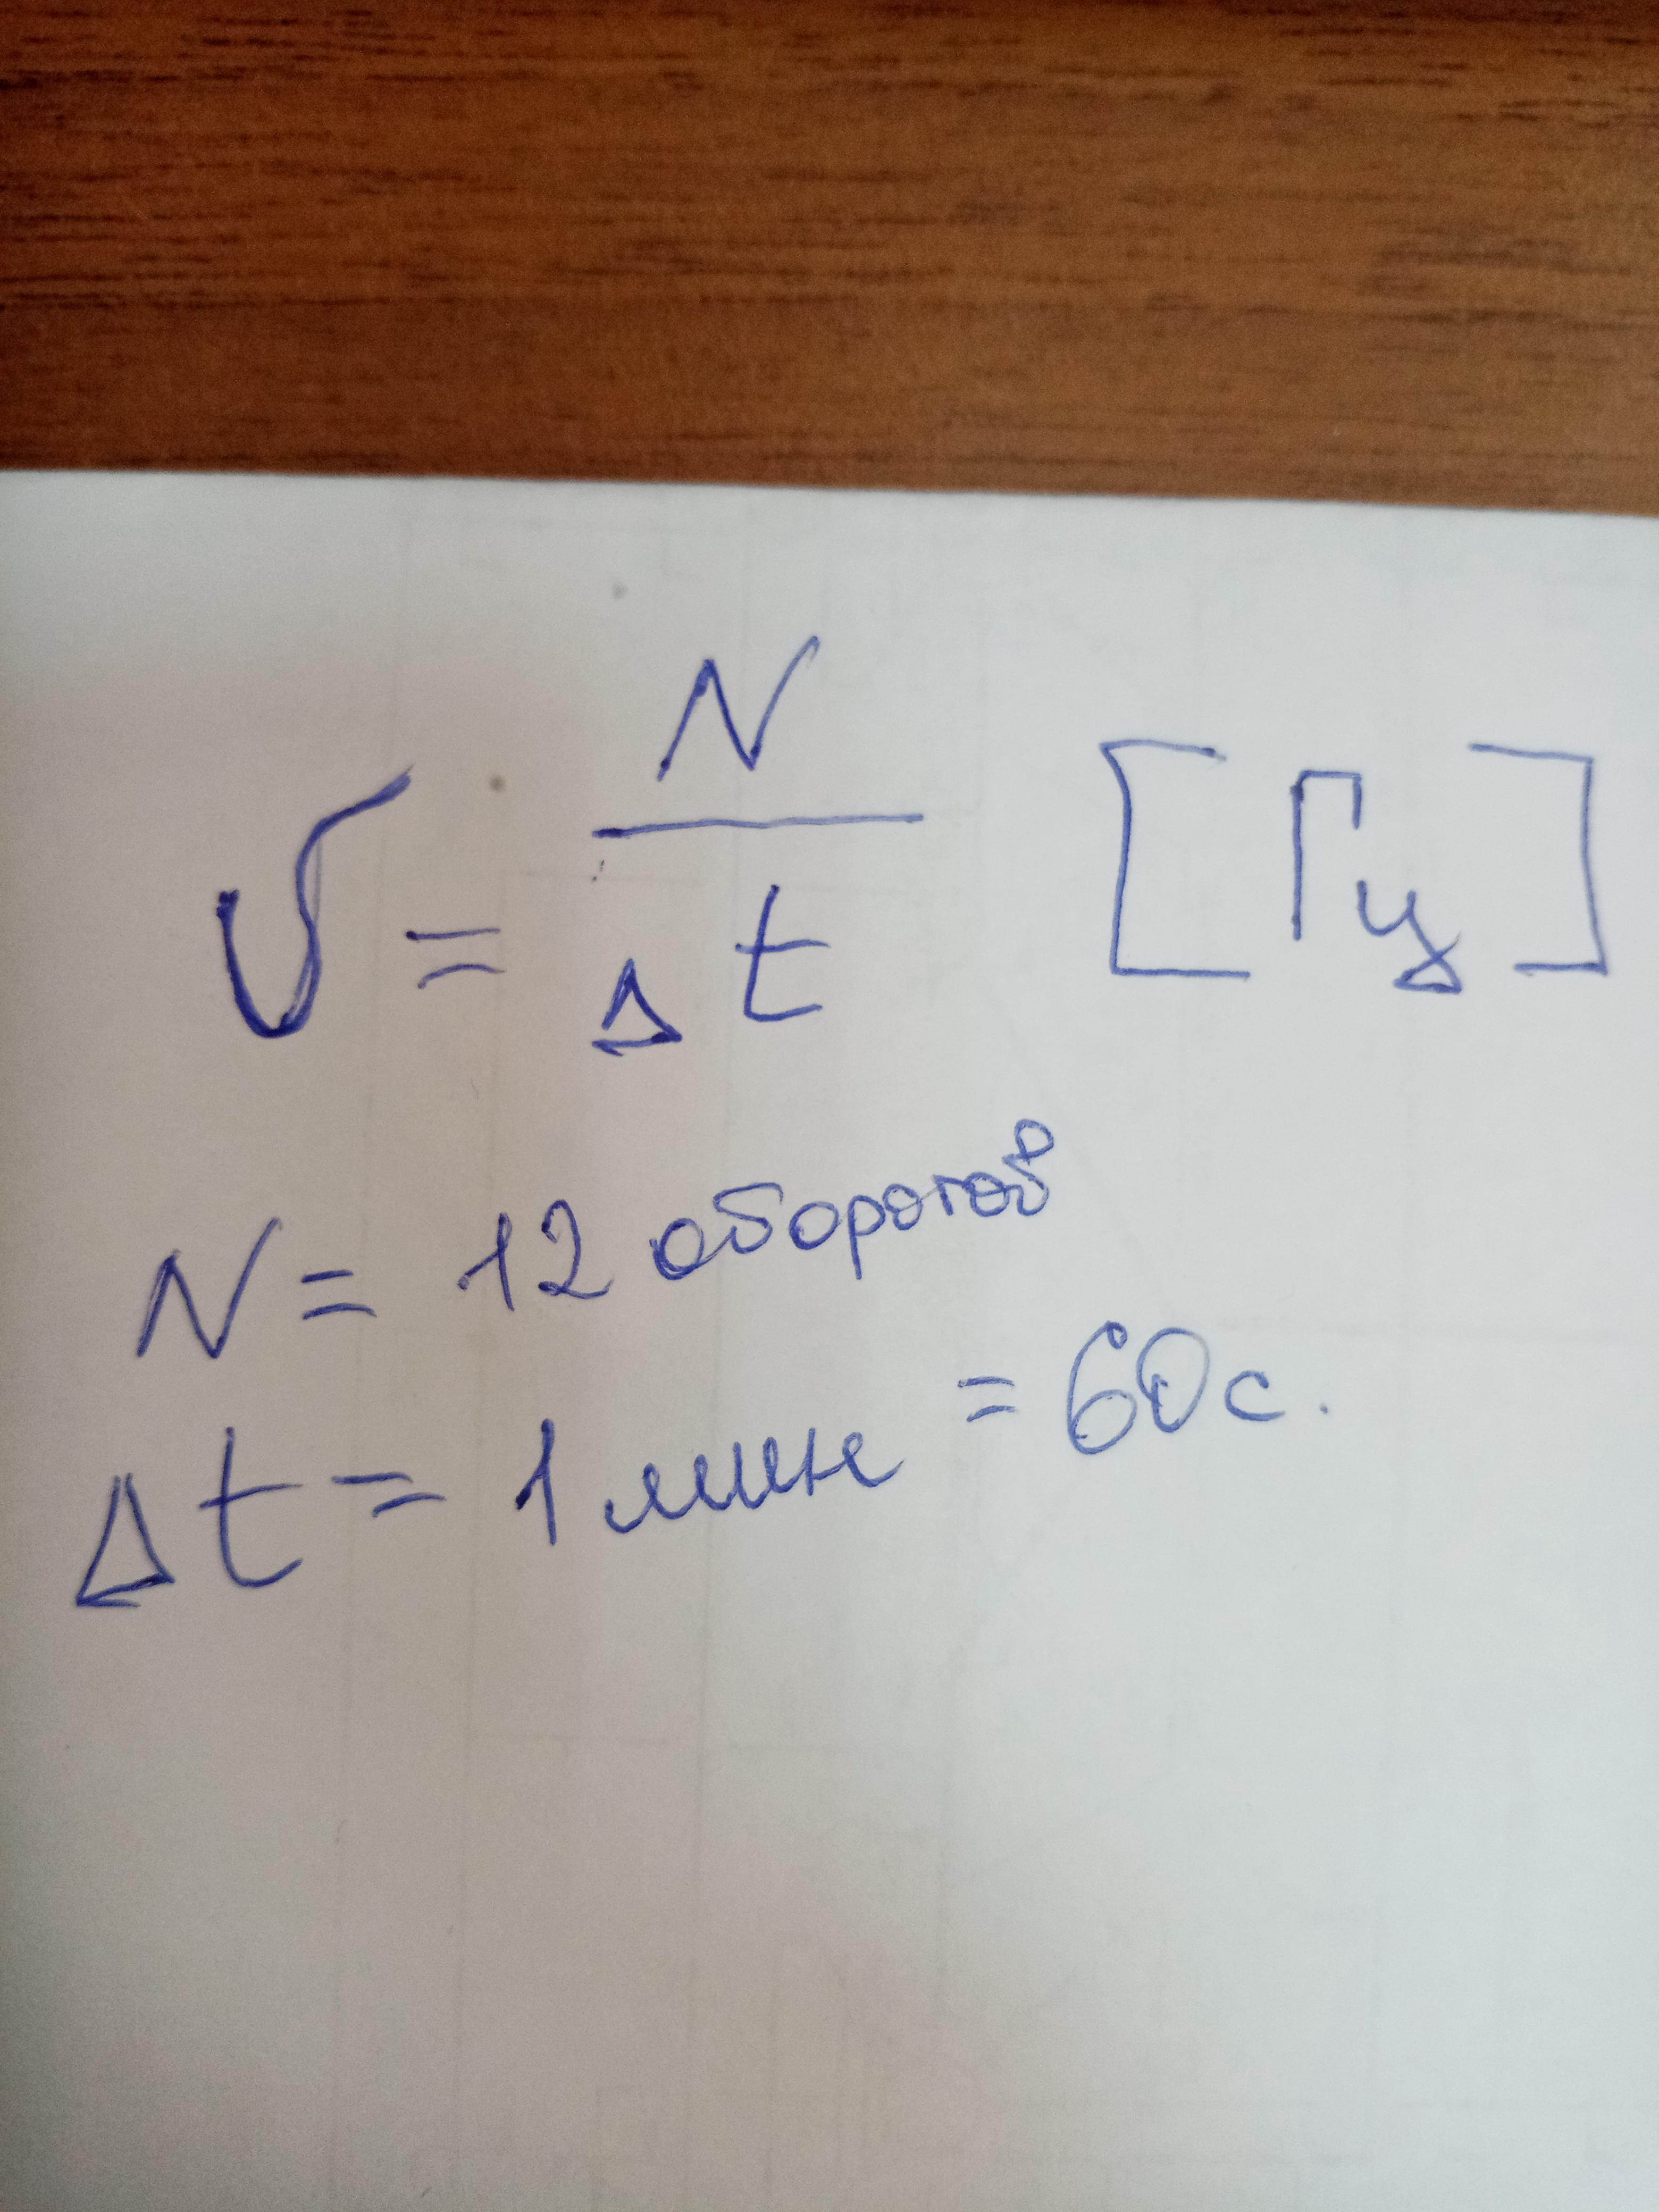 υ = N / Δt [Гц]
N = 12 оборотов
Δt = 1 мин = 60 с.